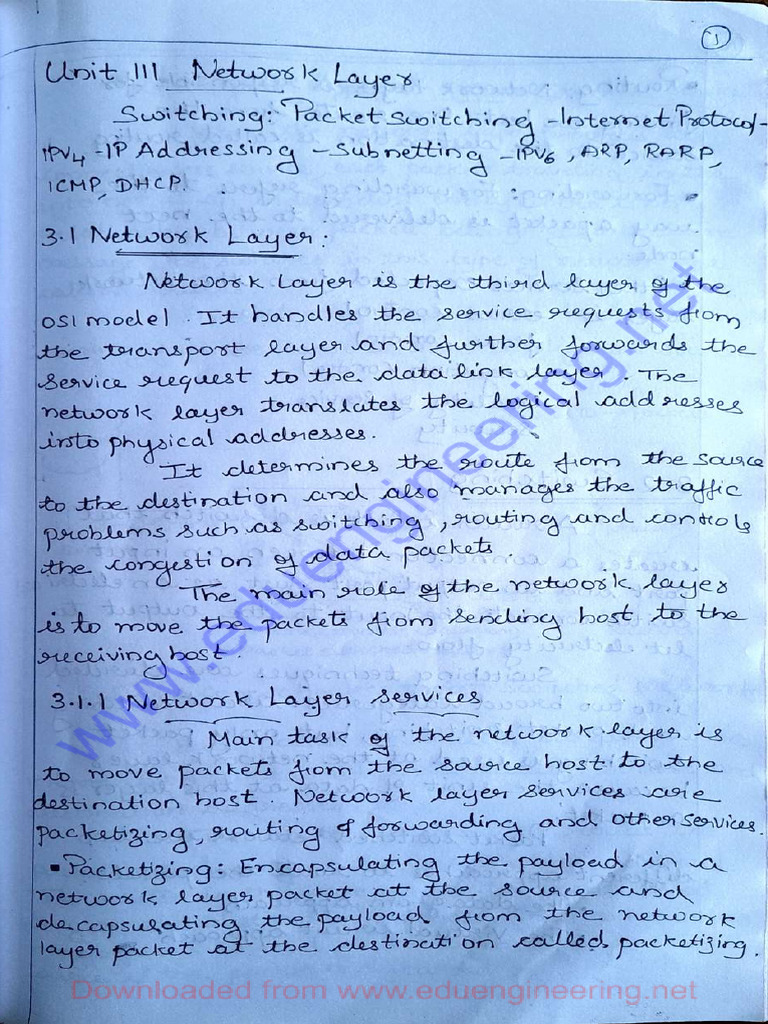 1
Unit III Network Layer
Switching: Packet switching - Internet Protocol -
IPV4 - IP Addressing - Subnetting - IPV6, ARP, RARP,
ICMP, DHCP.
3.1 Network Layer:
Network Layer is the third layer of the
OSI model. It handles the service requests from
the transport layer and further forwards the
service request to the data link layer. The
network layer translates the logical addresses
into physical addresses.
It determines the route from the source
to the destination and also manages the traffic
problems such as switching, routing and controls
the congestion of data packets.
The main role of the network layer
is to move the packets from sending host to the
receiving host.
3.1.1 Network Layer services
Main task of the network layer is
to move packets from the source host to the
destination host. Network layer services are
packetizing, routing & forwarding and other services.
▪ Packetizing: Encapsulating the payload in a
network layer packet at the source and
decapsulating the payload from the network
layer packet at the destination called packetizing.
www.eduengineering.net
Downloaded from www.eduengineering.net